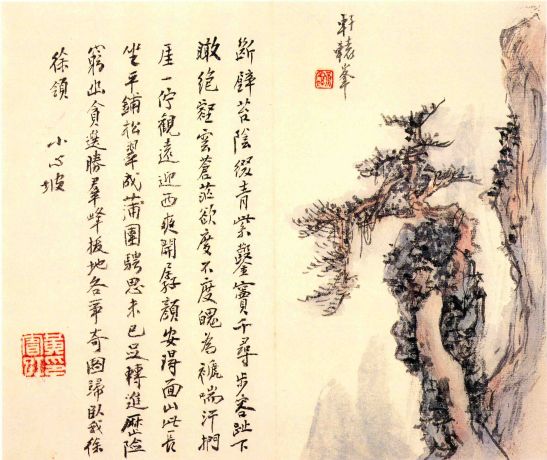 軒轅峯
斷壁苔陰綴青紫鑿竇千尋步容趾下
瞰絕壑雲蒼茫欲度不度魄為褫喘汗捫
厓一佇觀遠迎西爽開孱顏安得面山此長
坐平鋪松翠成蒲團騁思未已足轉進歷險
窮幽貪選勝羣峰拔地各爭奇歸臥我徐
徐領
小心坡